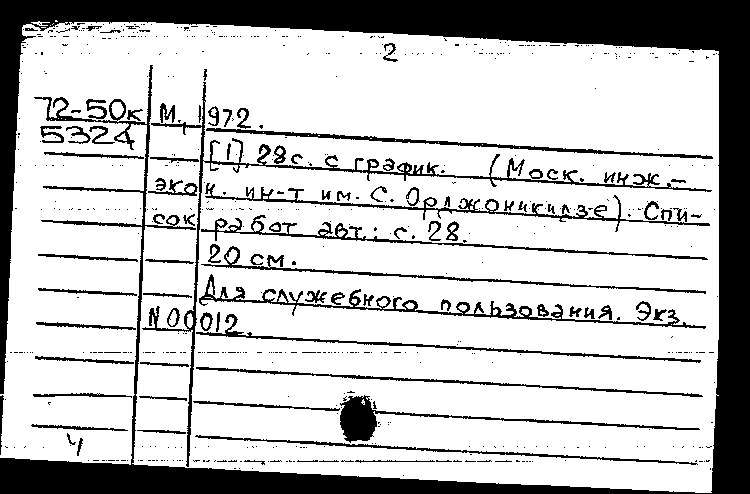 2
72-50к М., 1972.
5324
[1], 28 с. с график. (Моск. инж.-
экон. ин-т им. С. Орджоникидзе). Спи-
сок работ авт.: с. 28.
20 см.
Для служебного пользования. Экз.
N 00012.
Ч